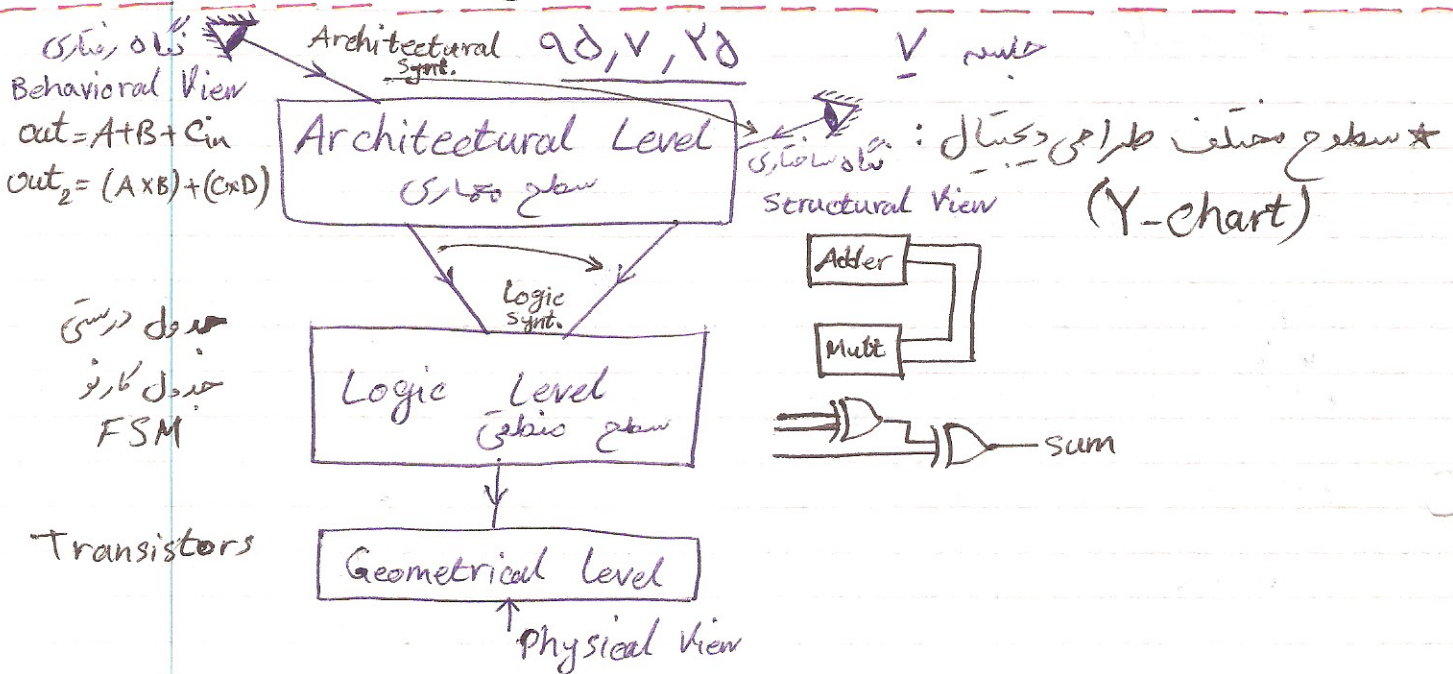 جلسه ۷
۹۵,۷,۲۵
★ سطوح مختلف طراحی دیجیتال :
(Y-chart)
نگاه رفتاری
Behavioral View
out = A+B+Cin
out₂ = (A×B)+(C×D)
Architectural
Synt.
Architectural Level
سطح معماری
نگاه ساختاری
Structural View
Adder
Mult
Logic
Synt.
جدول درستی
جدول کارنو
FSM
Logic Level
سطح منطقی
sum
Transistors
Geometrical Level
Physical View